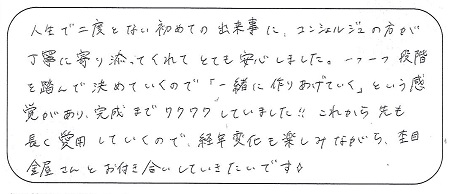 人生で二度とない初めての出来事に、コンシェルジュの方が
丁寧に寄り添ってくれてとても安心しました。一つ一つ段階
を踏んで決めていくので「一緒に作りあげていく」という感
覚があり、完成までワクワクしていました!! これから先も
長く愛用していくので、経年変化も楽しみながら、杢目
金屋さんとお付き合いしていきたいです♪